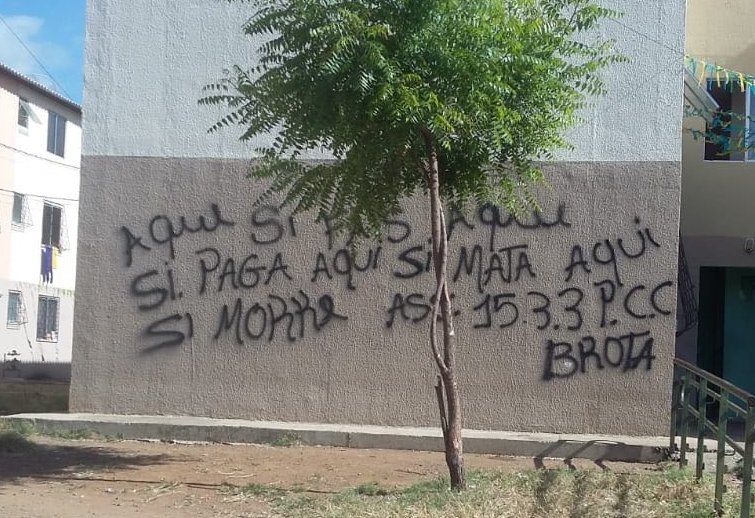 AQUI SI FAIS AQUI
SI. PAGA AQUI SI MATA AQUI
SI MORRE ASS: 15.3.3 P.C.C
BROTA